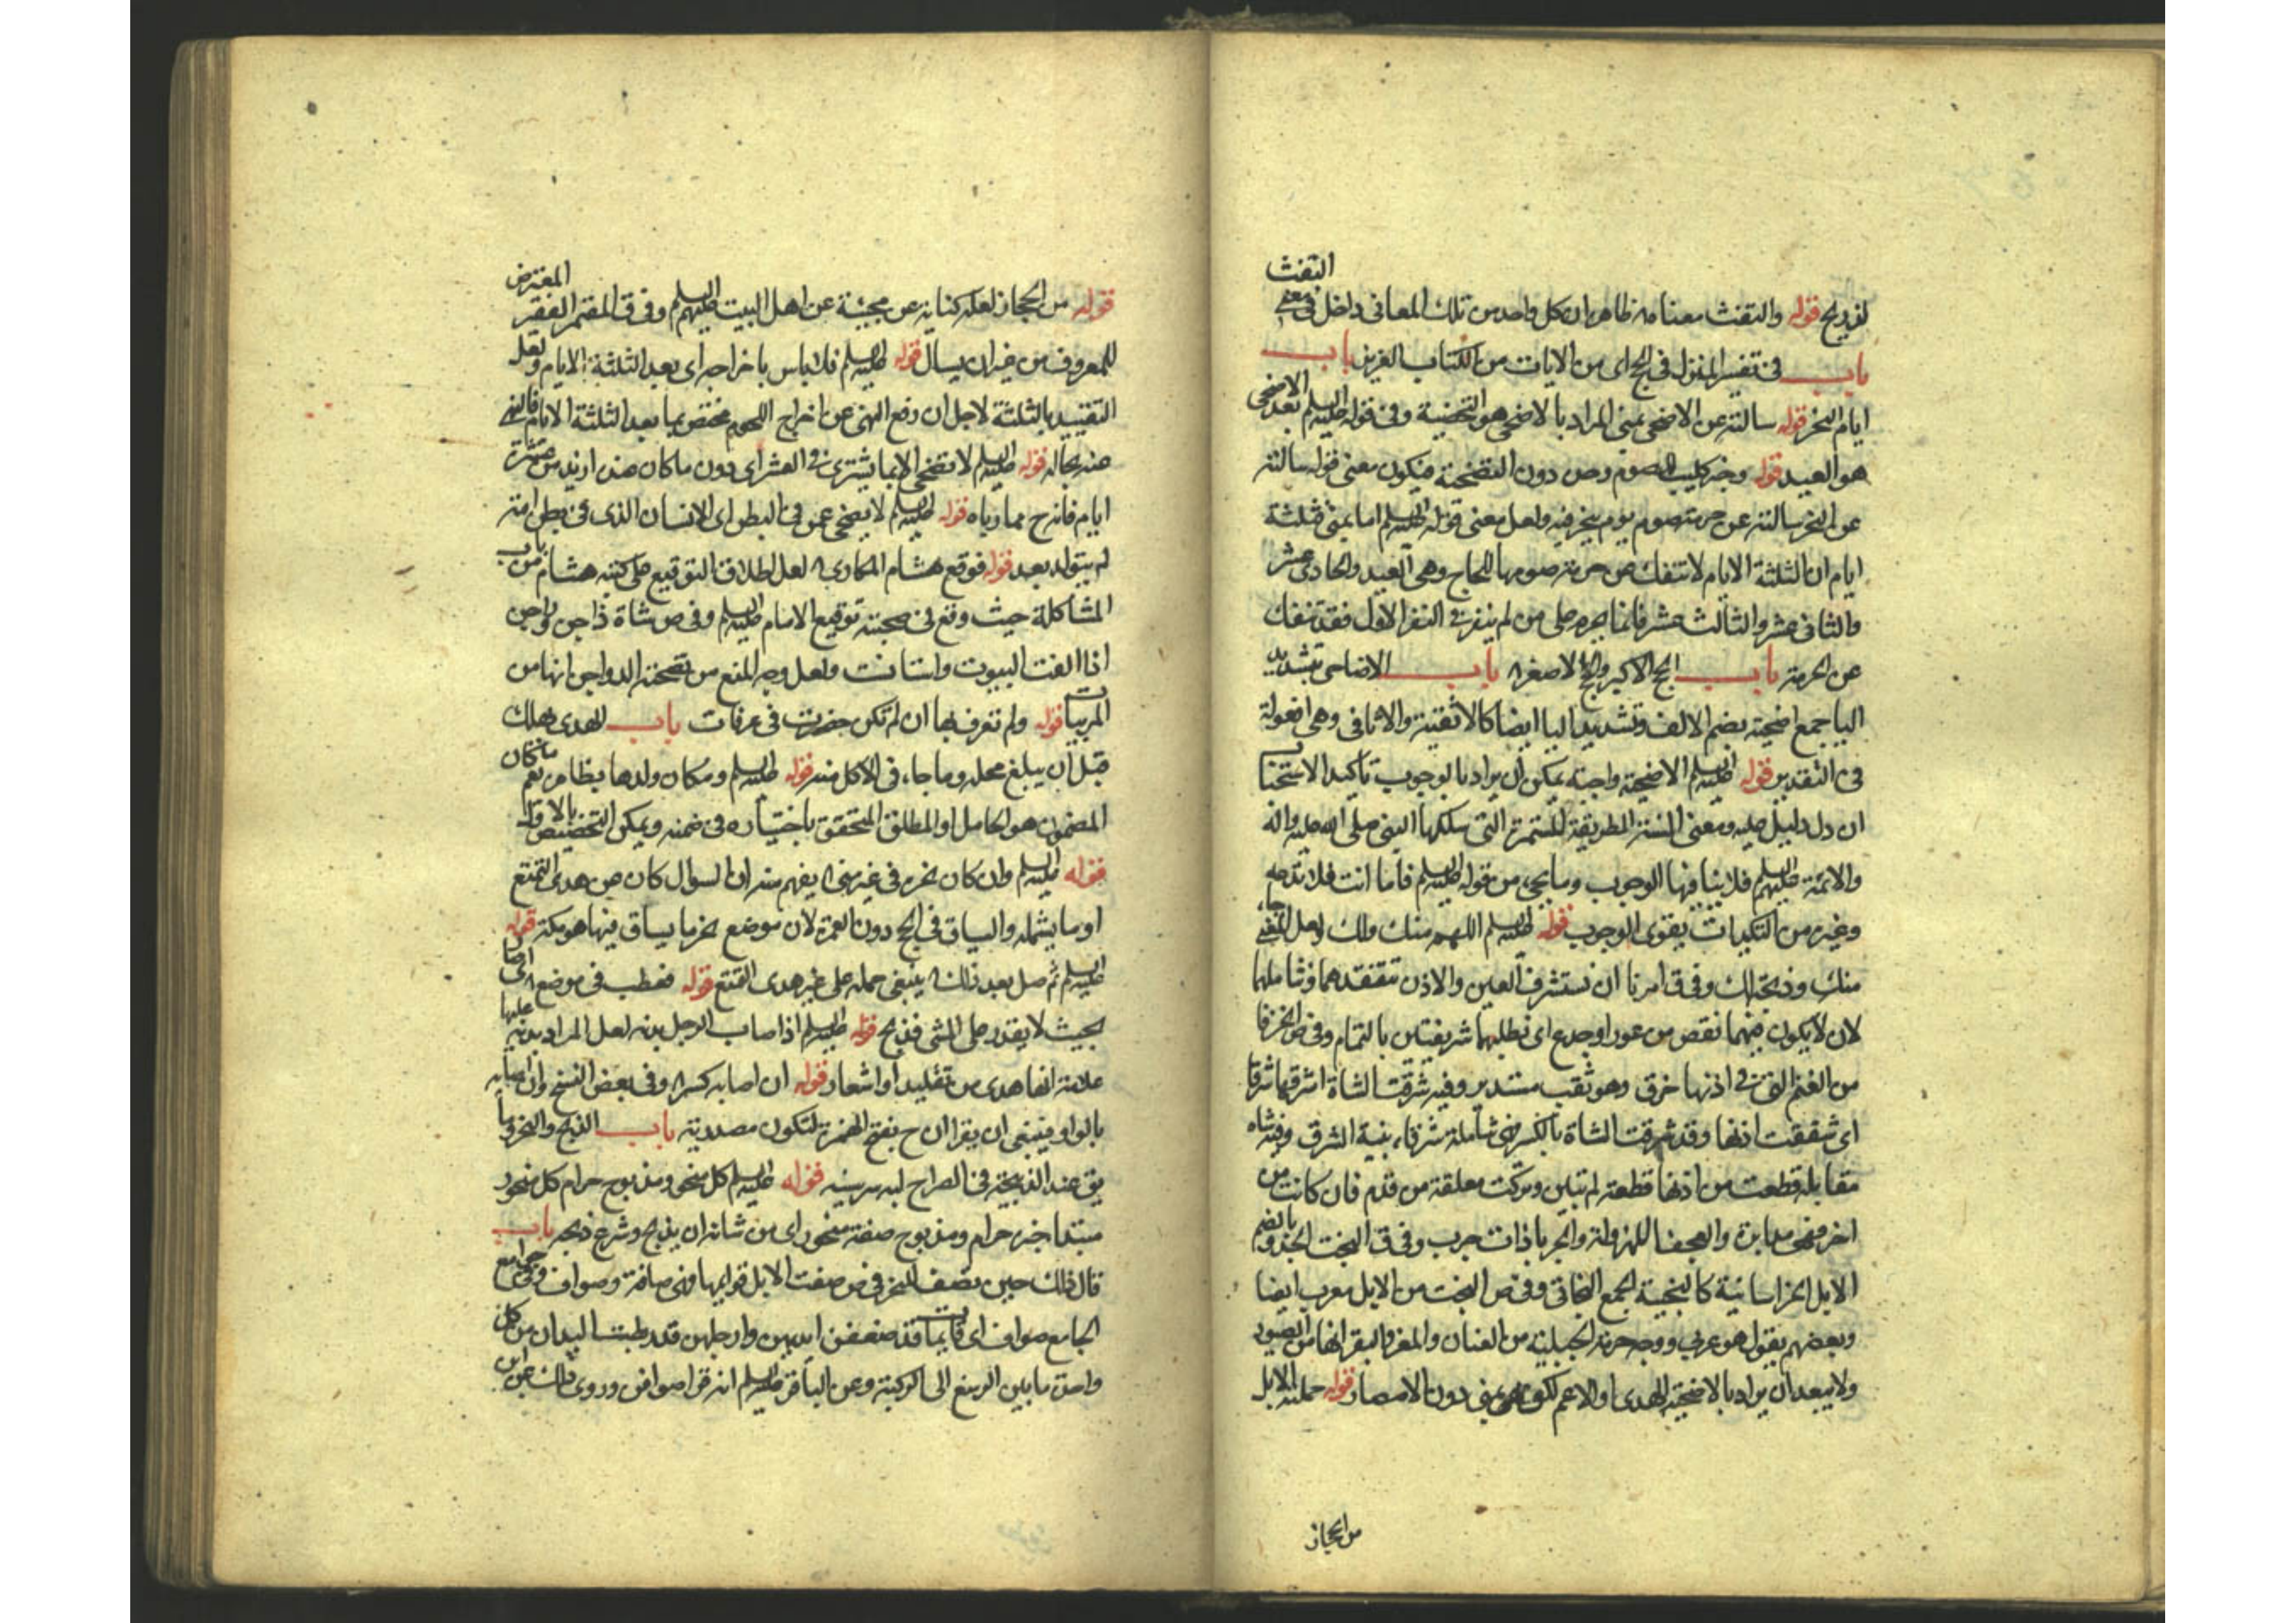 لفربح قوله والتفث معناه ظاهر ان كل واحد من تلك المعاني داخل في معنى التفث
باب في تفسير المنزل في الحج اى من الايات من الكتاب العزيز باب
ايام النحر قوله سالته عن الاضحى بمنى المراد بالاضحى هو التضحية وفي قوله عليه السلم بعد الاضحى
هو العيد قوله وجه كليب الصوم وحرم دون التضحية فيكون معنى قوله سالته
عن النحر سالته عن حرمة صوم يوم ينحر فيه ولعل معنى قوله عليه السلم اما بمنى فثلثة
ايام ان الثلثة الايام لا تنفك عن حرمة صومها للحاج وهى العيد والحادى عشر
والثانى عشر والثالث عشر فانما يحرم على من لم ينفر في النفر الاول فقد تنفك
عن الحرمة باب الحج الاكبر والحج الاصغر باب الاضاحى بتشديد
اليا جمع اضحية بضم الالف وتشديد اليا ايضا كالاثفية والاثافى وهى افعولة
في التقدير قوله عليه السلم الاضحية واجبة يمكن ان يراد بالوجوب تأكيد الاستحباب
ان دل دليل عليه ومعنى السنة الطريقة المستمرة التى سلكها النبى صلى الله عليه واله
والائمة عليهم السلم فلا ينافيها الوجوب وما يجىء من قوله عليه السلم فاما انت فلا تدعه
وغيره من التكيدات يقوى الوجوب قوله عليه السلم اللهم منك ولك لعل المعنى جاء
منك وذبحته لك وفي ق امرنا ان نستشرف العين والاذن نتفقدهما ونتاملهما
لان لا يكون فيهما نقص من عور او جدع اى نطلبهما شريفتين بالتمام وفي ص الخرقا
من الغنم التى في اذنها خرق وهو ثقب مستدير وفيه شرقت الشاة اشرقها شرقا
اى شققت اذنها وقد شرقت الشاة بالكسر فهى شاة شرقاء بينة الشرق وفيه شاه
مقابلة قطعت من اذنها قطعة لم تبن وتركت معلقة من قدم فان كانت من
اخر فهى مدابرة والعجفا المهزولة والجربا ذات جرب وفي ق البخت بالضم
الابل الخراسانية كالبختية الجمع البخاتى وفي ص البخت من الابل معرب ايضا
وبعضهم يقول هو عربى ووجه حرمة الجبلية من الضان والمعز والبقر انها من الصيود
ولا يبعد ان يراد بالاضحية الهدى او الاعم لكن بمنى دون الامصار قوله حملته الابل
من الحجاز
قوله من الحجاز لعله كناية عن مجيئه عن اهل البيت عليهم السلم وفي ق المعتر الفقير المعترض
للمعروف من غير ان يسال قوله عليه السلم فلا باس باخراجه اى بعد الثلثة الايام ولعل
التقييد بالثلثة لاجل ان رفع النهى عن اخراج اللحوم مختص بما بعد الثلثة الايام فالنهى
عنه بحاله قوله عليه السلم لا تضحى الا بما يشترى في العشر اى دون ما كان عند ازيد من عشرة
ايام فانه ح مما رباه قوله عليه السلم لا يضحى عمن في البطن اى الانسان الذى في بطن امه
لم يتولد بعد قوله فوقع هشام المكارى لعل اطلاق التوقيع على كتبه هشام من باب
المشاكلة حيث وقع في صحبته توقيع الامام عليه السلم وفي ص شاة داجن وراجن
اذا الفت البيوت واستانست ولعل وجه المنع من تضحية الدواجن انها من
المربيات قوله ولم تعرف بها ان لم تكن حضرت في عرفات باب الهدى هلك
قبل ان يبلغ محله وما جاء في الاكل منه قوله عليه السلم ومكان ولدها بظاهره نعم ان كان
المضمون هو الحامل او المطلق المتحقق باختياره في ضمنه ويمكن التخصيص بالاول
قوله عليه السلم وان كان نحره في غير منى يفهم منه ان السوال كان عن هدى التمتع
او ما يشمله والسياق في الحج دون العمرة لان موضع نحر ما يساق فيها هو مكة قوله
عليه السلم ثم صل بعد ذلك ينبغى حمله على غير هدى التمتع قوله فعطب في موضع اى صار
بحيث لا يقدر على المشى فذبح قوله عليه السلم اذا اصاب الرجل بدنه لعل المراد بدنه عليها
علامة انها هدى من تقليد او اشعار قوله ان اصابه كسر وفي بعض النسخ وان اصابه
بالواو فينبغى ان يقرا ان ح بفتح الهمزة لتكون مصدرية باب الذبح والنحر وما
يق عند الذبيحة في الصراح لبه سر سينه قوله عليه السلم كل منحور مذبوح حرام كل منحور
مبتدا خبره حرام ومذبوح صفة منحور اى من شانه ان يذبح وشرع ذبحه باب
قال ذلك حين تصف للنحر في ص صفت الابل قوائمها فهى صافة وصواف وفي جوامع
الجامع صواف اى قايمات قد صففن ايديهن وارجلهن قد ربطت اليدان من كل
واحدة ما بين الرسغ الى الركبة وعن الباقر عليه السلم انه قرا صوافن وروى ذلك عن ابن